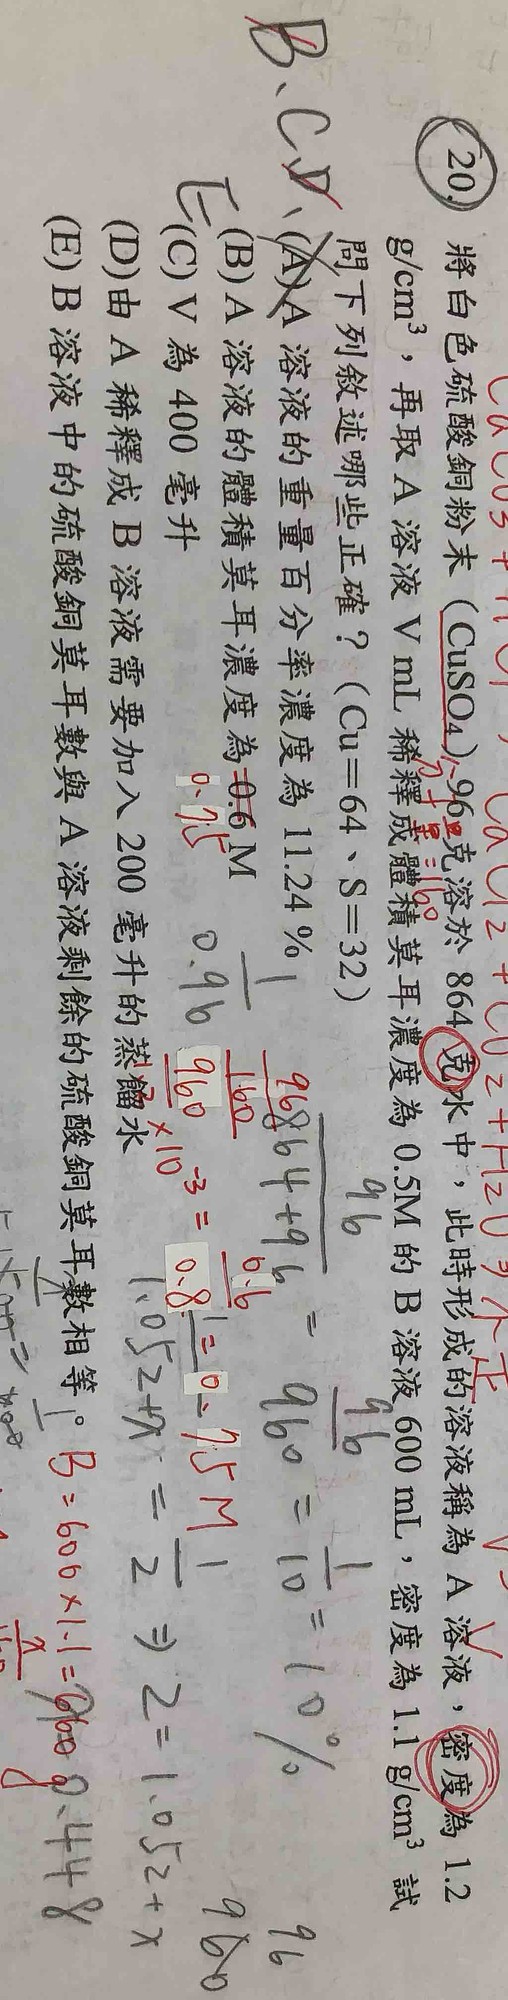 20. 將白色硫酸銅粉末（CuSO4）96 克溶於 864 克水中，此時形成的溶液稱為 A 溶液，密度為 1.2
g/cm³，再取 A 溶液 V mL 稀釋成體積莫耳濃度為 0.5M 的 B 溶液 600 mL，密度為 1.1 g/cm³ 試
問下列敘述哪些正確？（Cu＝64、S＝32）
(A) A 溶液的重量百分率濃度為 11.24 %
(B) A 溶液的體積莫耳濃度為 0.6 M
(C) V 為 400 毫升
(D) 由 A 稀釋成 B 溶液需要加入 200 毫升的蒸餾水
(E) B 溶液中的硫酸銅莫耳數與 A 溶液剩餘的硫酸銅莫耳數相等。
B、C、D、
E
CaCO3 + HCl
CaCl2 + CO2 + H2O
=160
0.75
0.96
96
864+96
=
96
960
=
1
10
= 10%
96
160
960
×10⁻³ =
0.6
0.8
= 0.75M
1.052+x
=
1
2
⇒ 2 = 1.052+x
B = 600×1.1 = 660g
0.448
96
960